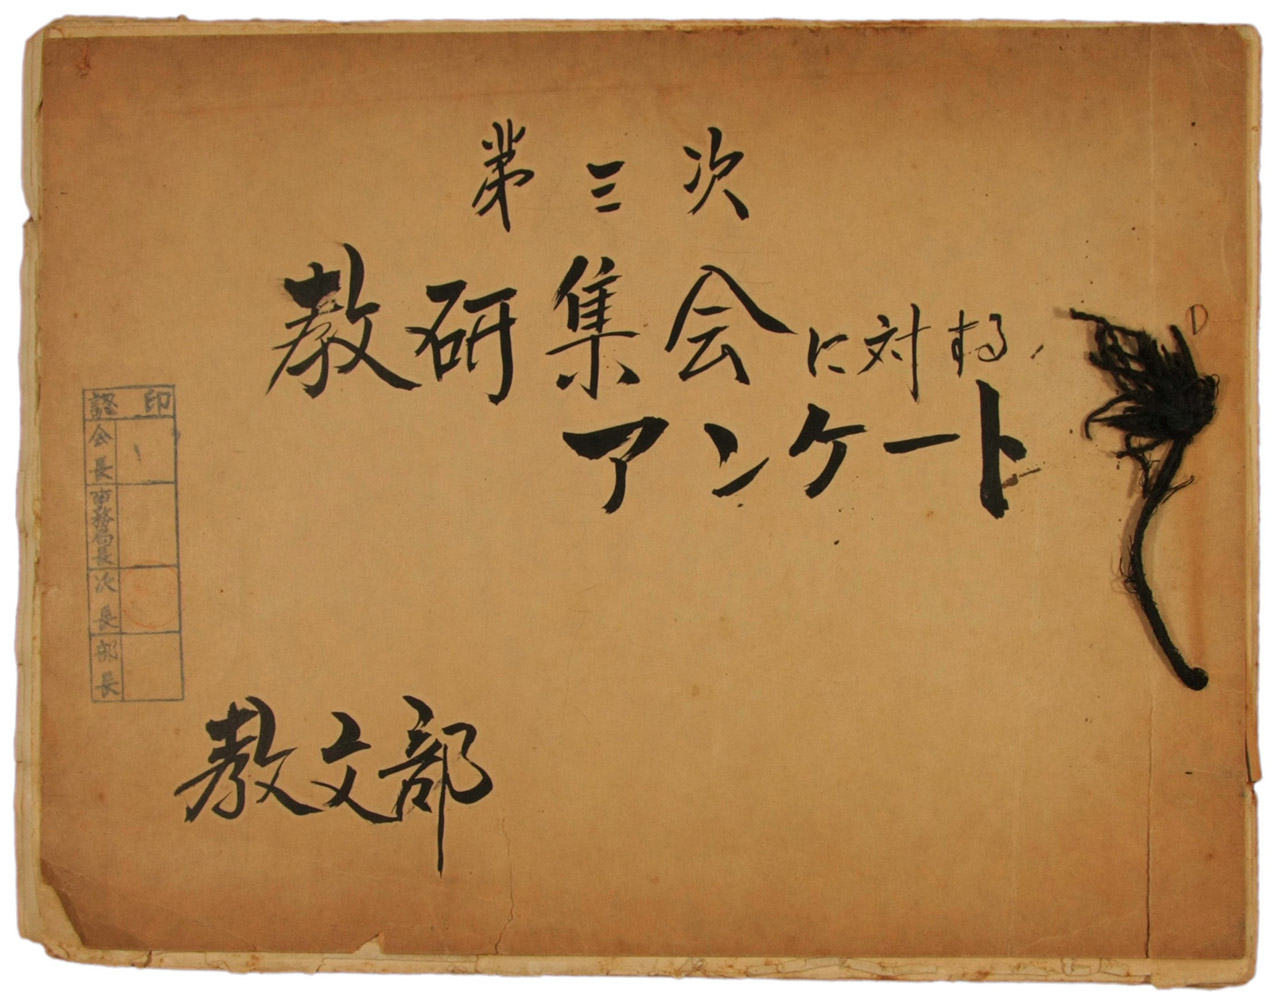 第三次
教研集会に対する
アンケート
認 印
会長
事務局長
次長
部長
教文部